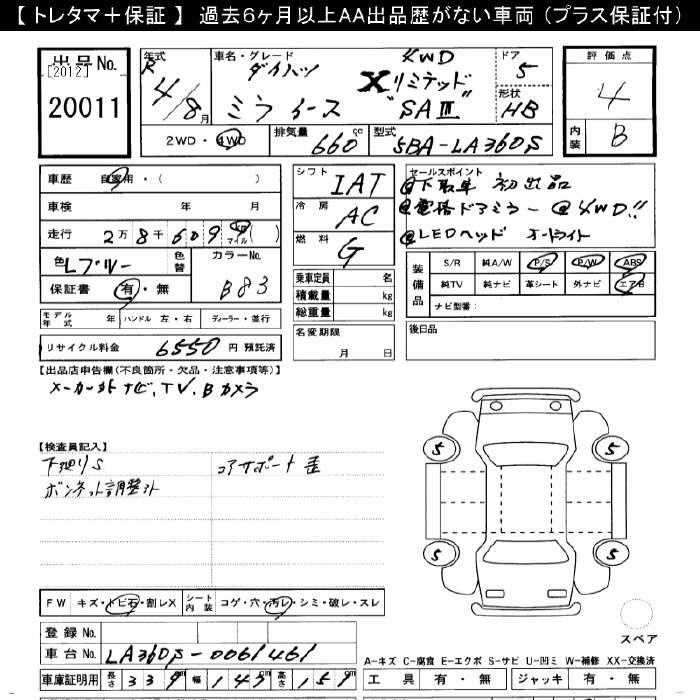 【 トレタマ＋保証 】 過去6ヶ月以上AA出品歴がない車両（プラス保証付）
出品No. [2012] 20011
年式 R 4/8月
車名・グレード ダイハツ ミライース 4WD Xリミテッド "SAⅢ"
ドア 5
形状 HB
2WD・4WD
排気量 660 cc
型式 5BA-LA360S
評価点 4
内装 B
車歴 自家用・( )
車検 年 月
走行 2万8千609 9 km マイル ( )
色 Lブルー 色替
カラーNo. B83
保証書 有・無
モデル年式 年 ハンドル 左・右 ディーラー・並行
リサイクル料金 6550 円 預託済
シフト IAT
冷房 AC
燃料 G
乗車定員 名
積載量 kg
総重量 kg
名変期限 月 日
セールスポイント
@下取車 初出品
@電格ドアミラー @4WD!!
@LEDヘッド オートライト
装備品 S/R 純A/W P/S P/W ABS
純TV 純ナビ 革シート 外ナビ エアB
ナビ型番:
後日品
【出品店申告欄(不良箇所・欠品・注意事項等)】
メーカー外ナビ、TV、Bカメラ
【検査員記入】
下廻りS コアサポート歪
ボンネット調整外
5 5
5 5
スペア
FW キズ・トビ石・割レX シート内装 コゲ・穴・汚レ・シミ・破レ・スレ
登録No.
車台No. LA360S-0061461
車庫証明用 長さ 339 幅 147cm 高さ 151
A-キズ C-腐食 E-エクボ S-サビ U-凹ミ W-補修 XX-交換済
工具 有・無 ジャッキ 有・無